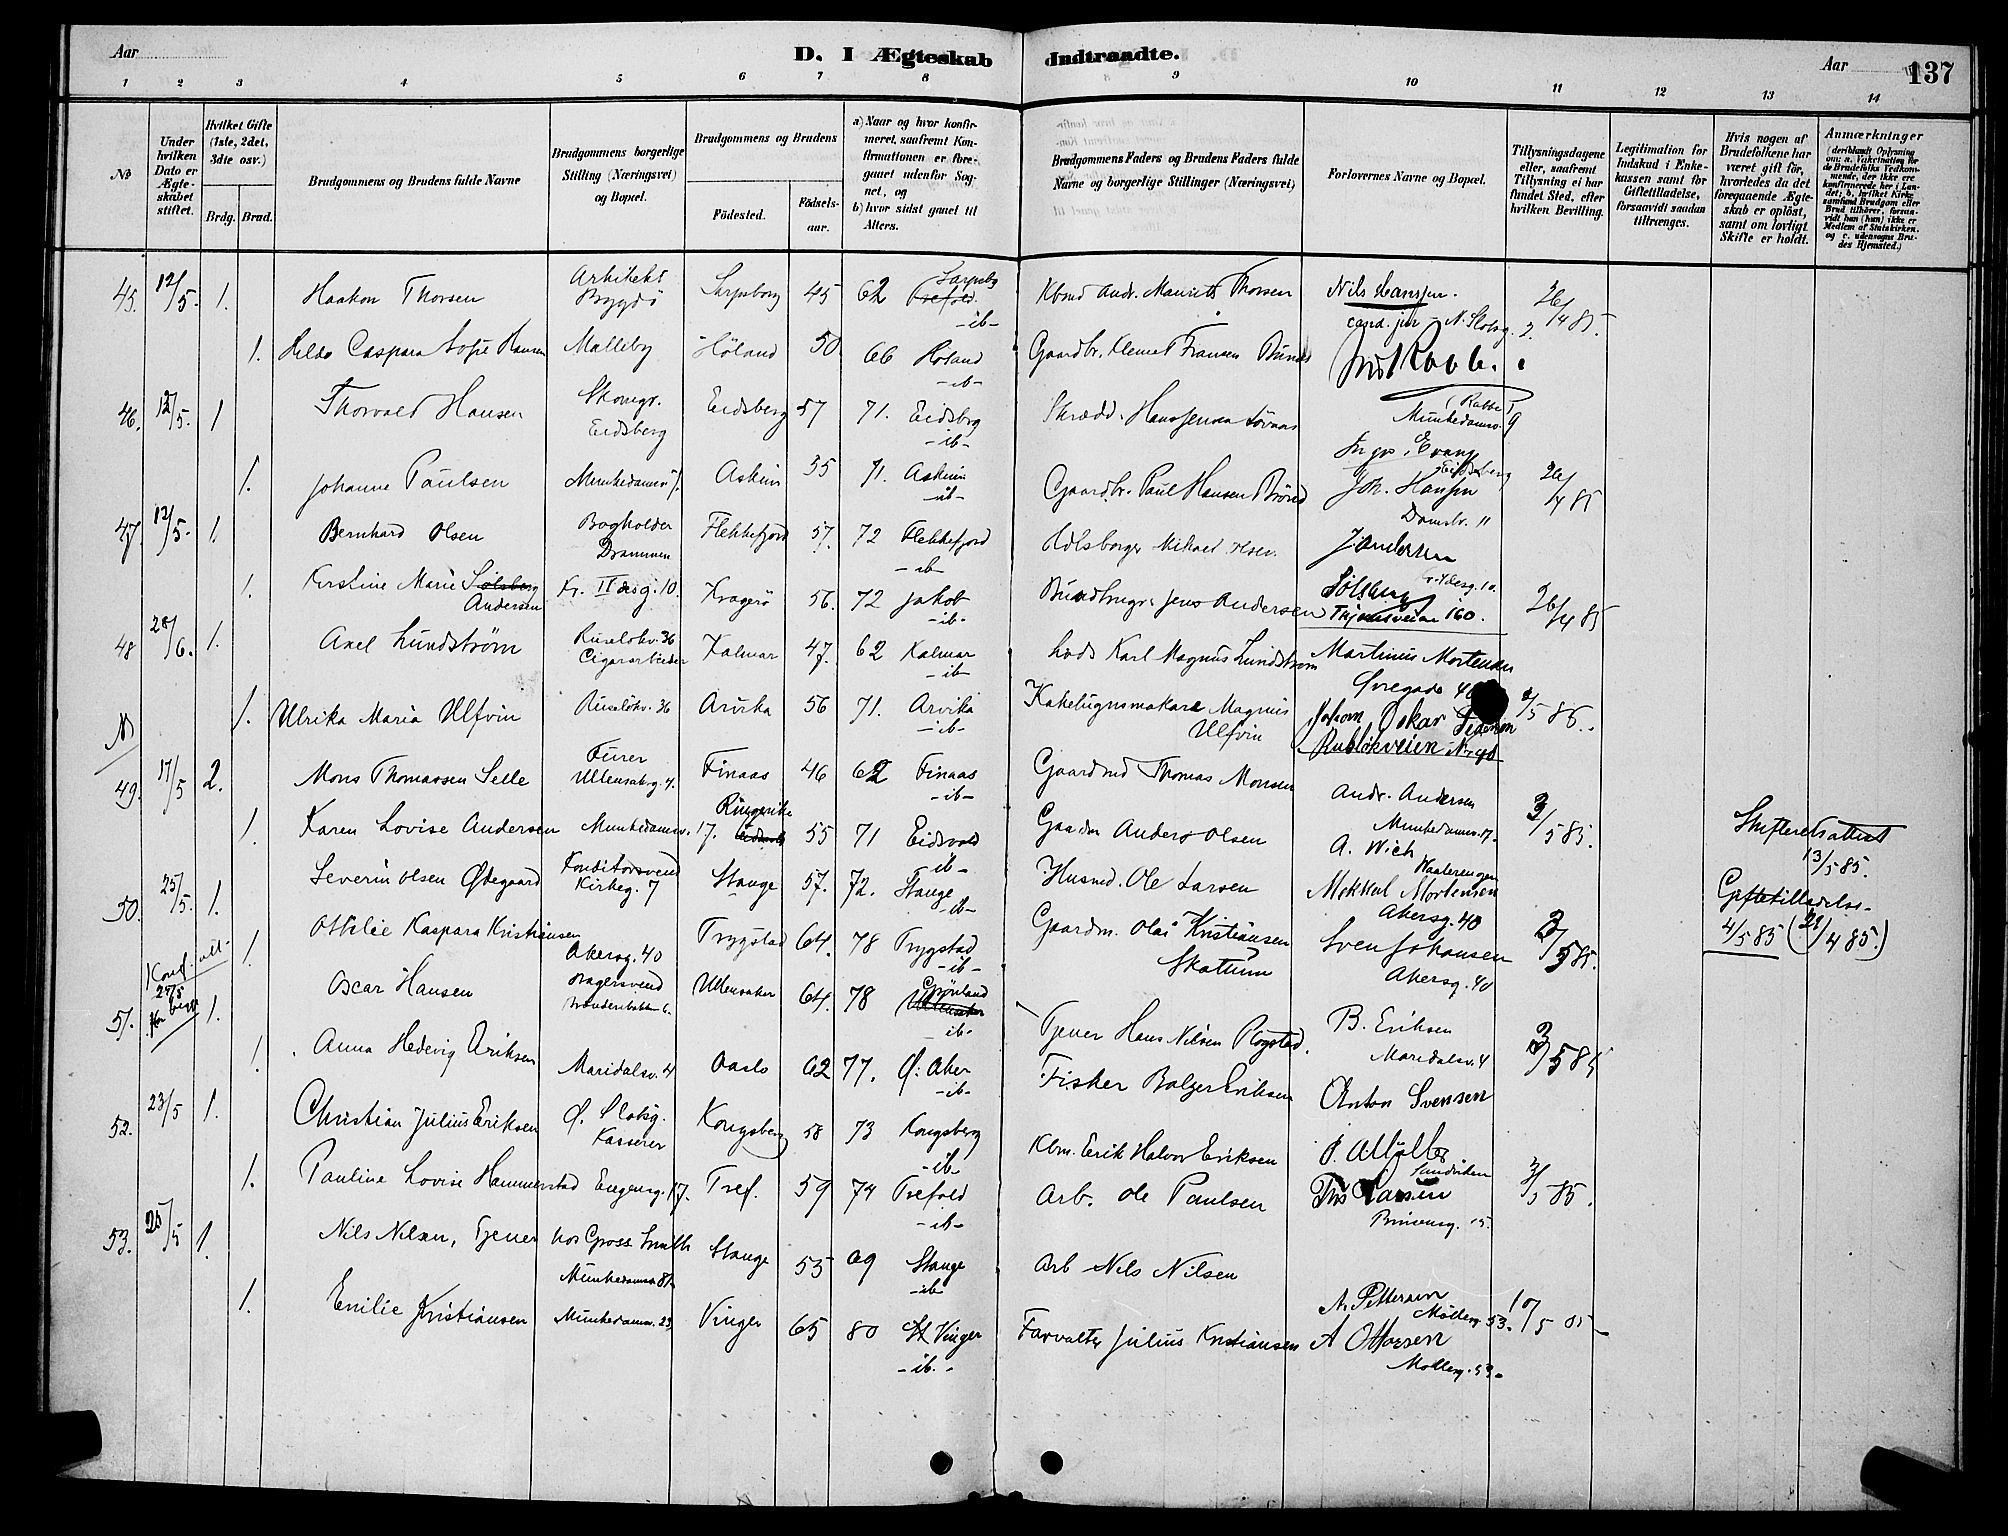 Aar
D. I Ægteskab Indtraadte.
Aar
137
1 2 3 4 5 6 7 8 8 9 10 11 12 13 14
No
Under hvilken Dato er Ægteskabet stiftet.
Hvilket Gifte (1ste, 2det, 3die osv.)
Brdg. Brud.
Brudgommens og Brudens fulde Navne
Brudgommens borgerlige Stilling (Næringsvei) og Bopæl.
Brudgommens og Brudens
Födested.
Födselsaar.
a) Naar og hvor konfirmeret, saafremt Konfirmationen er foregaaet udenfor Sognet, og
b) hvor sidst gaaet til Alters.
Brudgommens Faders og Brudens Faders fulde Navne og borgerlige Stillinger (Næringsvei)
Forlovernes Navne og Bopæl.
Tillysningsdagene eller, saafremt Tillysning ei har fundet Sted, efter hvilken Bevilling.
Legitimation for Indskud i Enkekassen samt for Giftetilladelse, forsaavidt saadan tiltrænges.
Hvis nogen af Brudefolkene har været gift för, hvorledes da det foregaaende Ægteskab er oplöst, samt om lovligt Skifte er holdt.
Anmærkninger
(deriblandt Oplysning om: a. Vakcination for de Brudefolks Vedkommende, der ikke ere konfirmerede her i Landet; b. hvilket Kirkesamfund Brudgom eller Brud tilhörer, forsaavidt han (hun) ikke er Medlem af Statskirken, og c. udensogns Brudes Hjemsted.)
45. 12/5. 1. Haakon Thorsen Arkitekt Bygdö Sarpsborg 45 62 Sarpsbg Trefold. -ib- Kbmd Andr. Maurits Thorsen Nils Hanssen. cand. jur - N. Slotsg. 2. 26/4 85.
1. Helda Caspara Sofie Hansen Malleby Höland 50 66 Höland -ib- Gaardbr. Klemet Fransen
46. 12/5. 1 Thorvald Hansen Eidsberg Eidsberg 57 71. Eidsbrg -ib- Skrædd. Hans Jensen Munkedamsv. 9
1. Johanne Paulsen Munkedamsv. Askim 55 71. Askim -ib- Gaardbr. Paul Hansen Joh. Hansen Damstr. 11 26/4 85
47. 12/5. 1. Bernhard Olsen Bogholder Drammen Flekkefjord 57. 72 Flekkefjord -ib- Mikael Olsen J Andersen
1. Kirstine Marie Solsberg Andersen Kragerö 56. 72 Jakob -ib- Jens Andersen Solsberg 160. 26/4 85
48 28/6. 1. Axel Lundström Ruselökv. 36 Cigararbeider Kalmar 47. 62 Kalmar -ib- Lods Karl Magnus Lundström Martinus Mortensen
1. Ulrika Maria Ulfvin Ruselökv. 36 Arvika 56 71. Arvika -ib- Kakelugnsmakare Magnus Ulfvin Johan Oskar /5 86.
49. 17/5 2. Mons Thomassen Selle Furer Ullensakrg. 4. Finaas 46 62 Finaas -ib- Gaardmd Thomas Monsen Andr. Andersen Munkedamsv. 17.
1. Karen Lovise Andersen Munkedamsv. 17. Ringerike Eidsvold 55 71 Eidsvold -ib- Gaardm Anders Olsen A. Wich Waalerengen 3/5 85. Skifteretsattest 13/5 85.
50. 25/5. 1. Severin Olsen Ödegaard Konditorsvend Kirkeg. 7 Stange 57. 72. Stange -ib- Husmd. Ole Larsen Mortensen Akersg. 40 Giftetilladelse 4/5 85 (21/4 85.)
1. Ottilie Kaspara Kristiansen Akersg. 40 Trygstad 64. 78 Trygstad -ib- Gaardm. Olai Kristiansen Skattum Sven Johansen Akersg. 40 3/5 85.
51. 1. Oscar Hansen Bagersvend Ullensaker 64. 78 Grönland Ullensaker -ib- Tjener Hans Nilsen Rogstad. B. Eriksen Maridalsv. 4
1. Anna Hedevig Eriksen Maridalsv. 4 Oaslo 62 77. Ö: Aker -ib- Fisker Eriksen Anton Svensen 3/5 85
52. 23/5 1. Christian Julius Eriksen Ö. Slotsg. Kasserer Kongsberg 58 73 Kongsberg -ib- Kbm. Erik Halvor Eriksen P. Möller Sandviken
1. Pauline Lovise Hammerstad Engensg. 17. Tref. 59 74 Trefold -ib- Arb. Ole Paulsen Larsen 15. 3/5 85.
53. 25/5 1. Nils Nilsen, Tjener hos Gross. Smith Munkedamsv. Stange 55 69 Stange -ib- Arb Nils Nilsen A. Pettersen Mölleg. 53.
1. Emilie Kristiansen Munkedamsv. 23 Vinger 65 80 Vinger -ib.- Forvalter Julius Kristiansen A Ottosen Mölleg. 53. 10/5 85